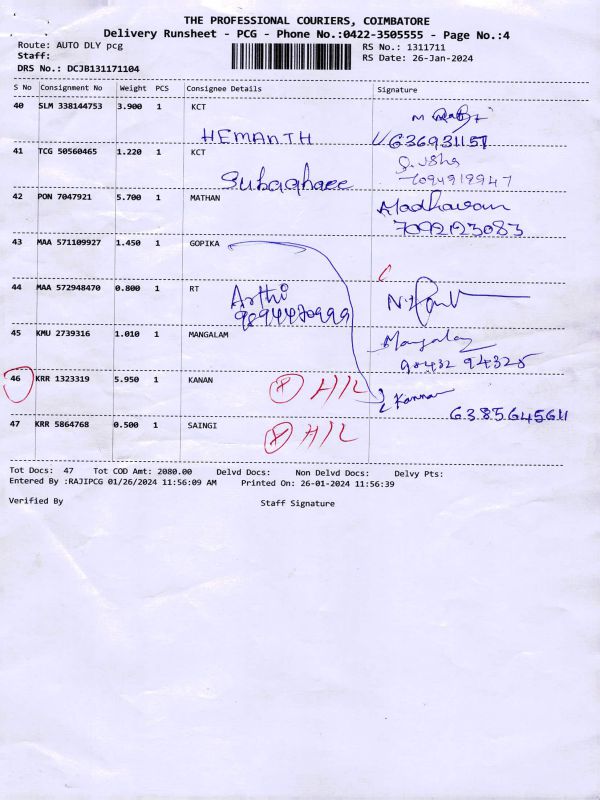 THE PROFESSIONAL COURIERS, COIMBATORE
Delivery Runsheet - PCG - Phone No.:0422-3505555 - Page No.:4
Route: AUTO DLY pcg
RS No.: 1311711
Staff:
RS Date: 26-Jan-2024
DRS No.: DCJB131171104
S No Consignment No Weight PCS Consignee Details Signature
40 SLM 338144753 3.900 1 KCT
HEMANTH 6369311151
41 TCG 50560465 1.220 1 KCT
7094919947
42 PON 7047921 5.700 1 MATHAN Madhavan
43 MAA 571109927 1.450 1 GOPIKA
44 MAA 572948470 0.800 1 RT Arthi
9894470999
45 KMU 2739316 1.010 1 MANGALAM Mangalay
98432 94325
46 KRR 1323319 5.950 1 KANAN H/L Kannan
6385645611
47 KRR 5864768 0.500 1 SAINGI H/L
Tot Docs: 47 Tot COD Amt: 2080.00 Delvd Docs: Non Delvd Docs: Delvy Pts:
Entered By :RAJIPCG 01/26/2024 11:56:09 AM Printed On: 26-01-2024 11:56:39
Verified By Staff Signature